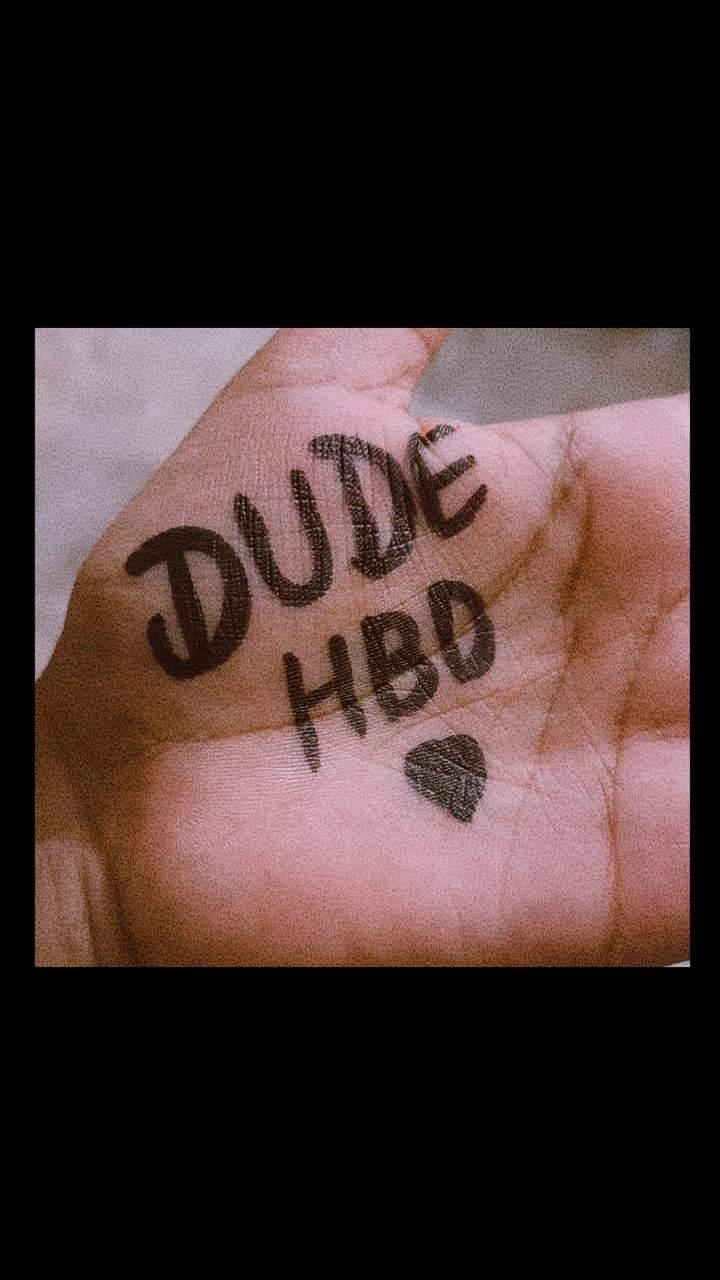 DUDE
HBD